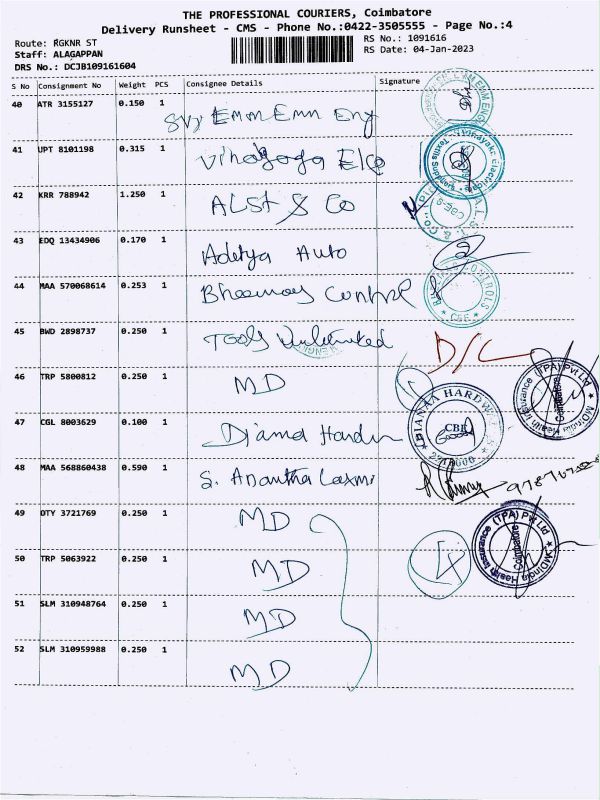 THE PROFESSIONAL COURIERS, Coimbatore
Delivery Runsheet - CMS - Phone No.:0422-3505555 - Page No.:4
Route: RGKNR ST
Staff: ALAGAPPAN
DRS No.: DCJB109161604
RS No.: 1091616
RS Date: 04-Jan-2023
S No Consignment No Weight PCS Consignee Details Signature
40 ATR 3155127 0.150 1 EMM EMM Eng
41 UPT 8101198 0.315 1 Vinayaga Ele
42 KRR 788942 1.250 1 ALSI & Co
43 EDQ 13434906 0.170 1 Aditya Auto
44 MAA 570068614 0.253 1 Control
CONTROLS
CBE
45 BWD 2898737 0.250 1 Tools Unlimited
46 TRP 5800812 0.250 1 MD
MDIndia Health Insurance (TPA) Pvt Ltd
Coimbatore
47 CGL 8003629 0.100 1 Diamd Hardw
DIANAA HARDWARES
CBE
48 MAA 568860438 0.590 1 S. Anantha Laxmi
49 DTY 3721769 0.250 1 MD
50 TRP 5063922 0.250 1 MD
14
MDIndia Health Insurance (TPA) Pvt Ltd
Coimbatore
51 SLM 310948764 0.250 1 MD
52 SLM 310959988 0.250 1 MD